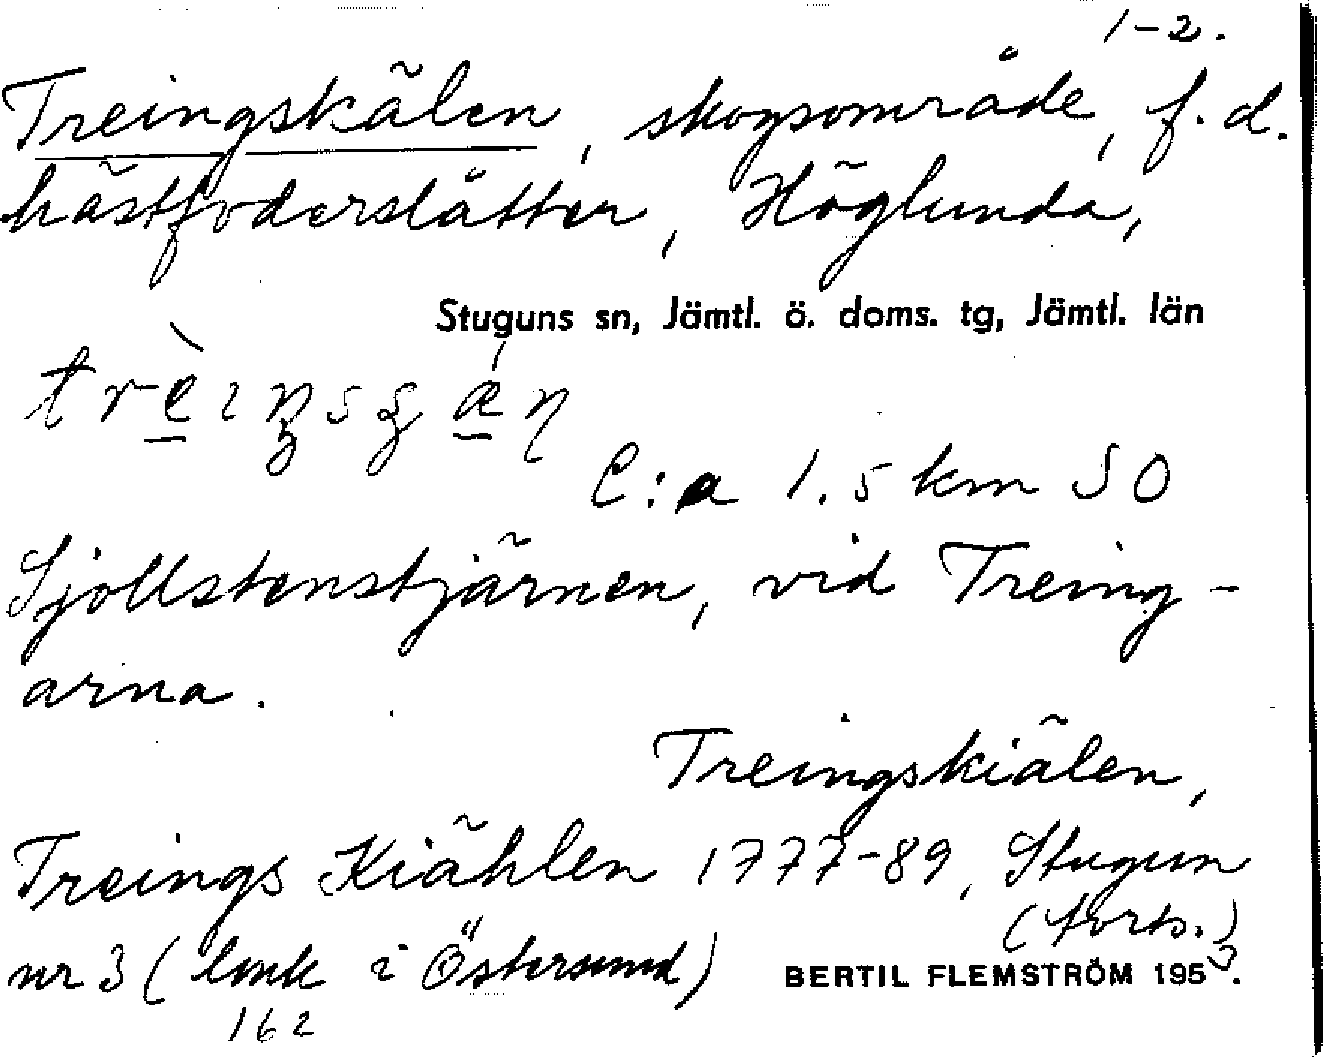 1-2.
Treingskälen, skogsområde, f. d.
hästfoderslåtter, Höglunda,
Stuguns sn, Jämtl. ö. doms. tg, Jämtl. län
C:a 1.5 km SO
Sjollstenstjärnen, vid Treing-
arna.
Treingskiälen,
Treings Kiählen 1777-89, Stugun
(forts.)
nr 3 (lmk i Östersund)
BERTIL FLEMSTRÖM 1953.
162